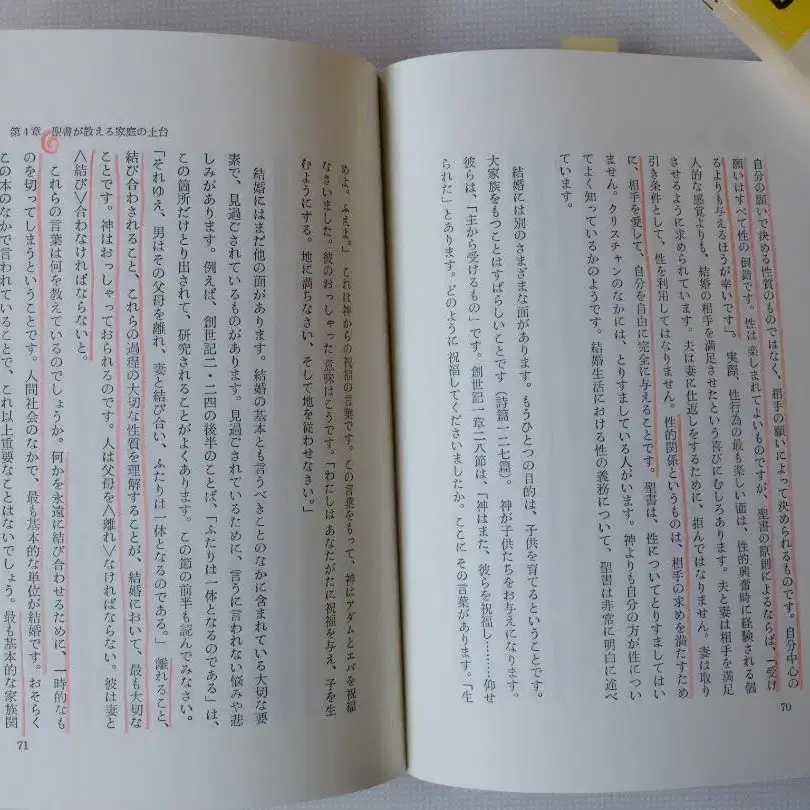 自分の願いで決める性質のものではなく、相手の願いによって決められるものです。自分中心の
願いはすべて性の倒錯です。性は楽しまれてよいものですが、聖書の原則によるならば、「受け
るよりも与えるほうが幸いです」。実際、性行為の最も楽しい面は、性的興奮時に経験される個
人的な感覚よりも、結婚の相手を満足させたという喜びにむしろあります。夫と妻は相手を満足
させるように求められています。夫は妻に仕返しをするために、拒んではなりません。妻は取り
引き条件として、性を利用してはなりません。性的関係というものは、相手の求めを満たすため
に、相手を愛して、自分を自由に完全に与えることです。聖書は、性についてとりすましてはい
ません。クリスチャンのなかには、とりすましている人がいます。神よりも自分の方が性につい
てよく知っているかのようです。結婚生活における性の義務について、聖書は非常に明白に述べ
ています。
結婚には別のさまざまな面があります。もうひとつの目的は、子供を育てるということです。
大家族をもつことはすばらしいことです(詩篇一二七篇)。神が子供たちをお与えになります。
彼らは、「主から受けるもの」です。創世記一章二八節は、「神はまた、彼らを祝福し………仰せ
られた」とあります。どのように祝福してくださいましたか。ここにその言葉があります。「生
70
第4章 聖書が教える家庭の土台
めよ。ふえよ。」これは神からの祝福の言葉です。この言葉をもって、神はアダムとエバを祝福
なさいました。彼のおっしゃった意味はこうです。「わたしはあなたがたに祝福を与え、子を生
むようにする。地に満ちなさい、そして地を従わせなさい。」
結婚にはまだ他の面があります。結婚の基本とも言うべきことのなかに含まれている大切な要
素で、見過ごされているものがあります。見過ごされているために、言うに言われない悩みや悲
しみがあります。例えば、創世記二・二四の後半のことば、「ふたりは一体となるのである」は、
この箇所だけとり出されて、研究されることがよくあります。この節の前半も読んでみなさい。
「それゆえ、男はその父母を離れ、妻と結び合い、ふたりは一体となるのである。」離れること、
結び合わされること、これらの過程の大切な性質を理解することが、結婚において、最も大切な
ことです。神はおっしゃっておられるのです。人は父母を<離れ>なければならない。彼は妻と
<結び>合わなければならないと。
これらの言葉は何を教えているのでしょうか。何かを永遠に結び合わせるために、一時的なも
のを切ってしまうということです。人間社会のなかで、最も基本的な単位が結婚です。おそらく
この本のなかで言われていることで、これ以上重要なことはないでしょう。最も基本的な家族関
71